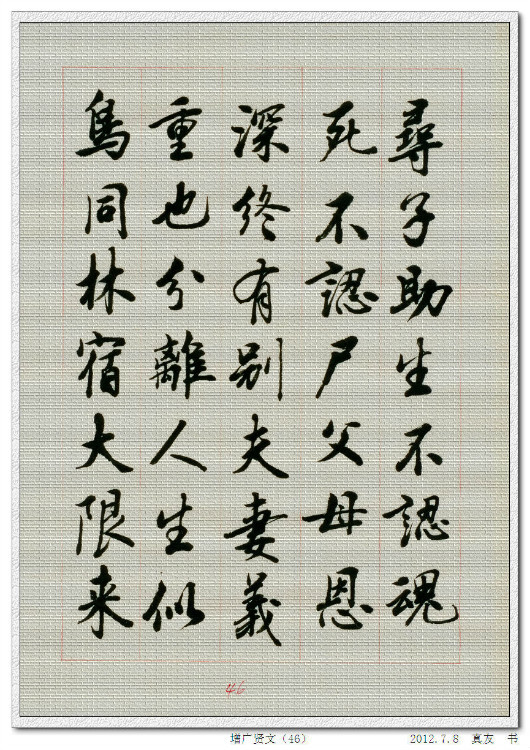 尋子助生不認魂
死不認尸父母恩
深終有别夫妻義
重也分離人生似
鳥同林宿大限来
46
增广贤文（46）
2012.7.8 真友 书